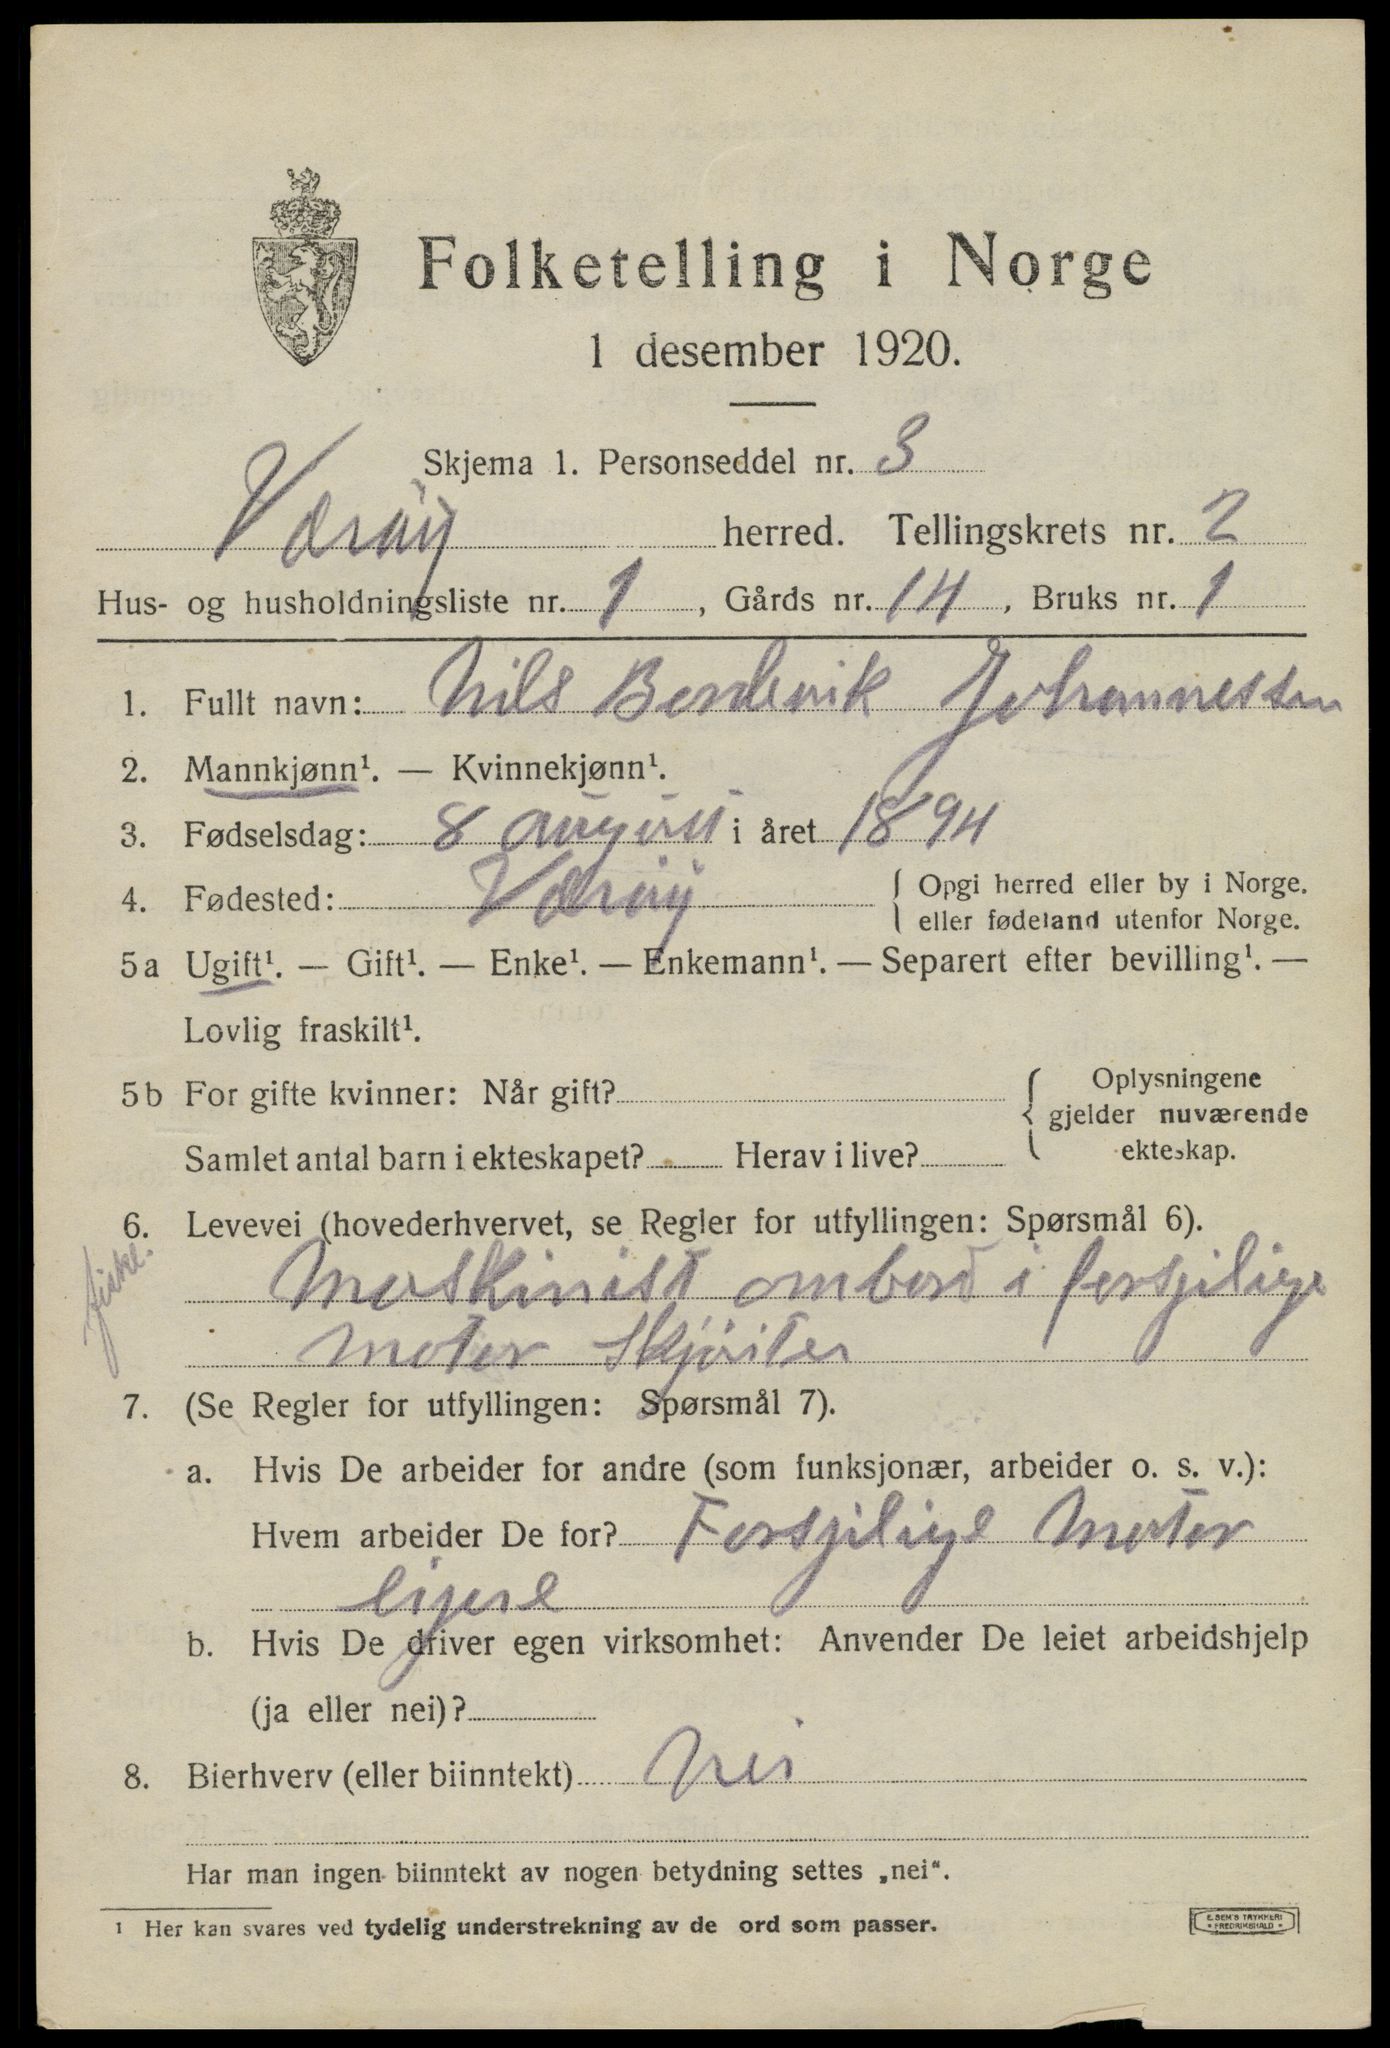 Folketelling i Norge
1 desember 1920.
Skjema 1. Personseddel nr. 3
Værøy herred. Tellingskrets nr. 2
Hus- og husholdningsliste nr. 1, Gårds nr. 14, Bruks nr. 1
1. Fullt navn: Nils Johannessen
2. Mannkjønn¹. — Kvinnekjønn¹.
3. Fødselsdag: 8 august i året 1894
4. Fødested: Værøy { Opgi herred eller by i Norge.
eller fødeland utenfor Norge.
5a Ugift¹. — Gift¹. — Enke¹. — Enkemann¹. — Separert efter bevilling¹. —
Lovlig fraskilt¹.
5b For gifte kvinner: Når gift? { Oplysningene
gjelder nuværende
Samlet antal barn i ekteskapet? Herav i live? ekteskap.
6. Levevei (hovederhvervet, se Regler for utfyllingen: Spørsmål 6).
fiske.
Maskinist ombord i forsjelige
motor Skjøiter
7. (Se Regler for utfyllingen: Spørsmål 7).
a. Hvis De arbeider for andre (som funksjonær, arbeider o. s. v.):
Hvem arbeider De for? Forsjelige Motor
eijere
b. Hvis De driver egen virksomhet: Anvender De leiet arbeidshjelp
(ja eller nei)?
8. Bierhverv (eller biinntekt) Nei
Har man ingen biinntekt av nogen betydning settes „nei“.
¹ Her kan svares ved tydelig understrekning av de ord som passer.
E. SEM'S TRYKKERI
* FREDRIKSHALD *